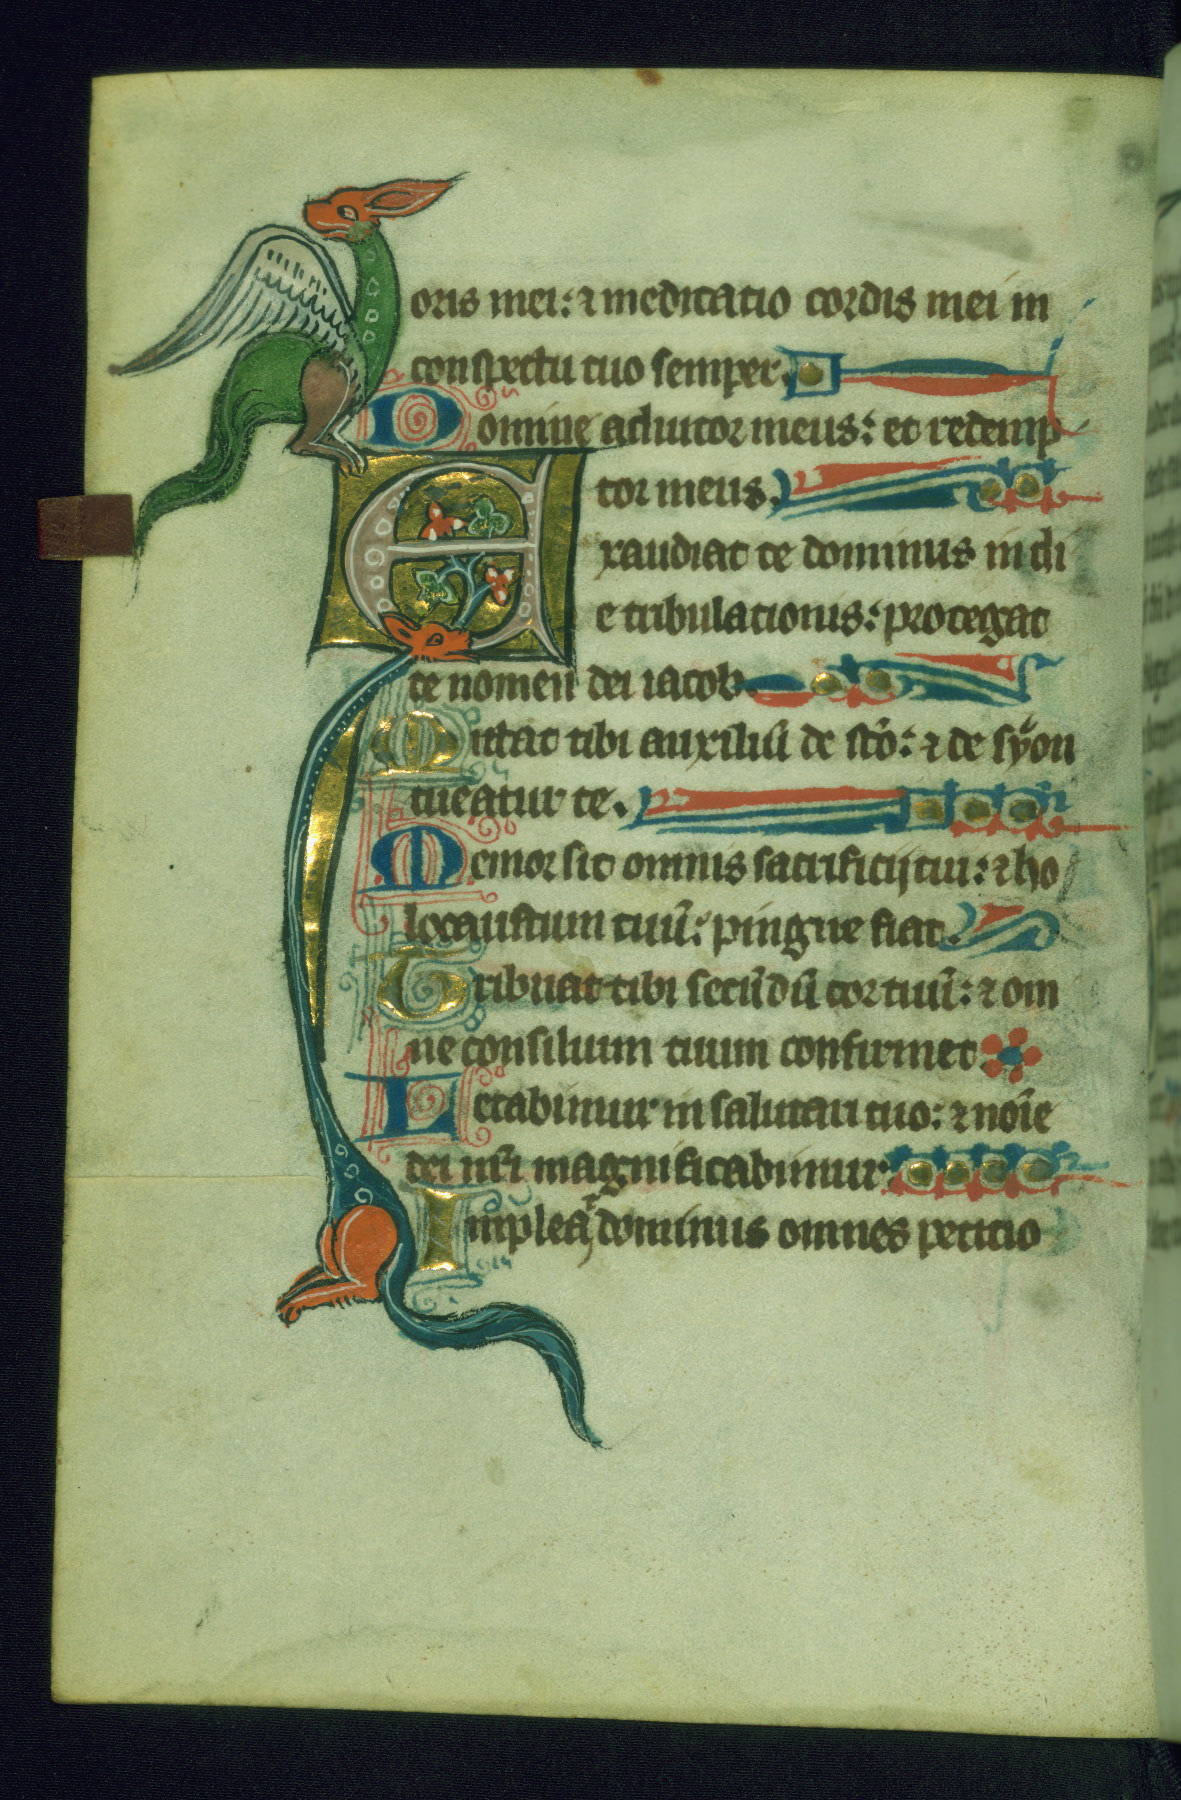 oris mei: ⁊ meditatio cordis mei in
conspectu tuo semper.
Domine adiutor meus: et redemp
tor meus.
Exaudiat te dominus in di
e tribulationis: protegat
te nomen dei iacob.
Mittat tibi auxiliū de sc̄o: ⁊ de syon
tueatur te.
Memor sit omnis sacrificij tui: ⁊ ho
locaustum tuū: pingue fiat.
Tribuat tibi secūdū cor tuum: ⁊ om
ne consilium tuum confirmet
Letabimur in salutari tuo: ⁊ noīe
dei nr̄i magnificabimur.
Impleat dominus omnes petitio